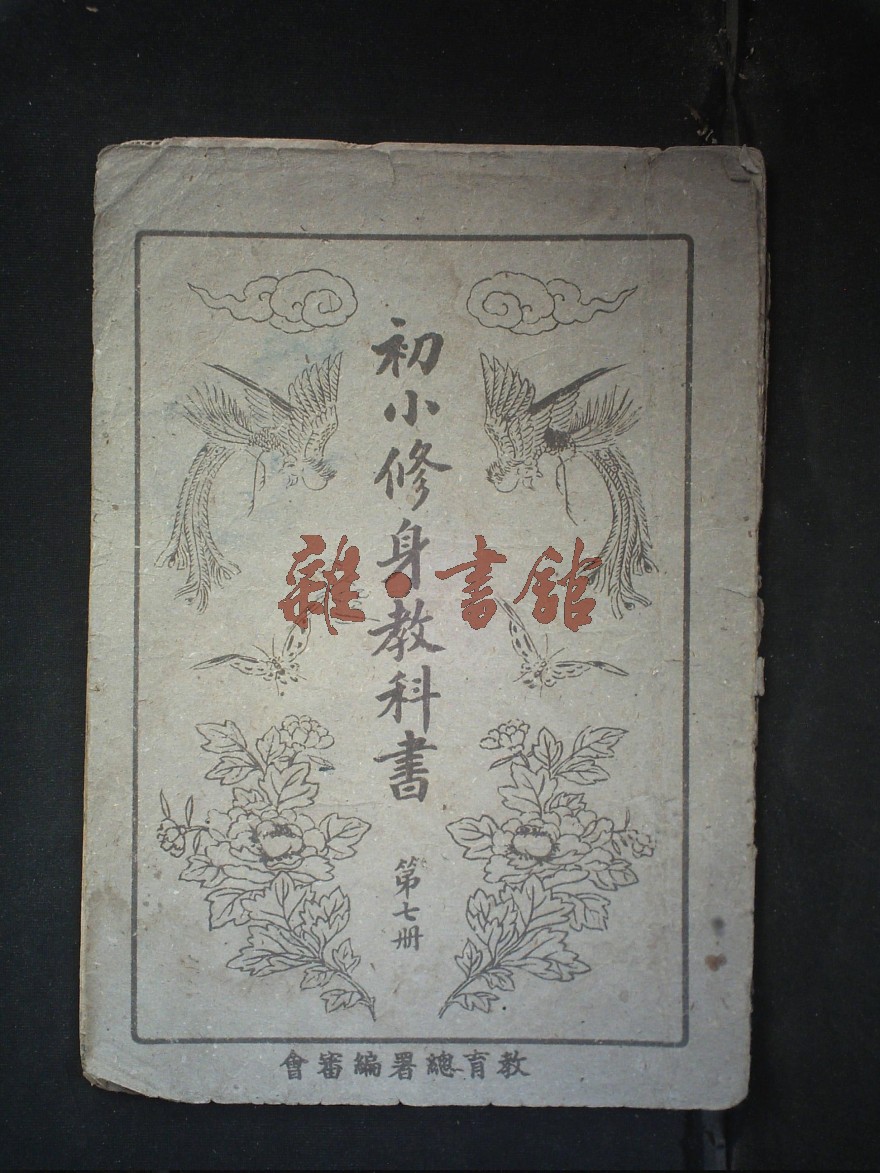 初小修身教科書
第七册
教育總署編審會
雜·書館